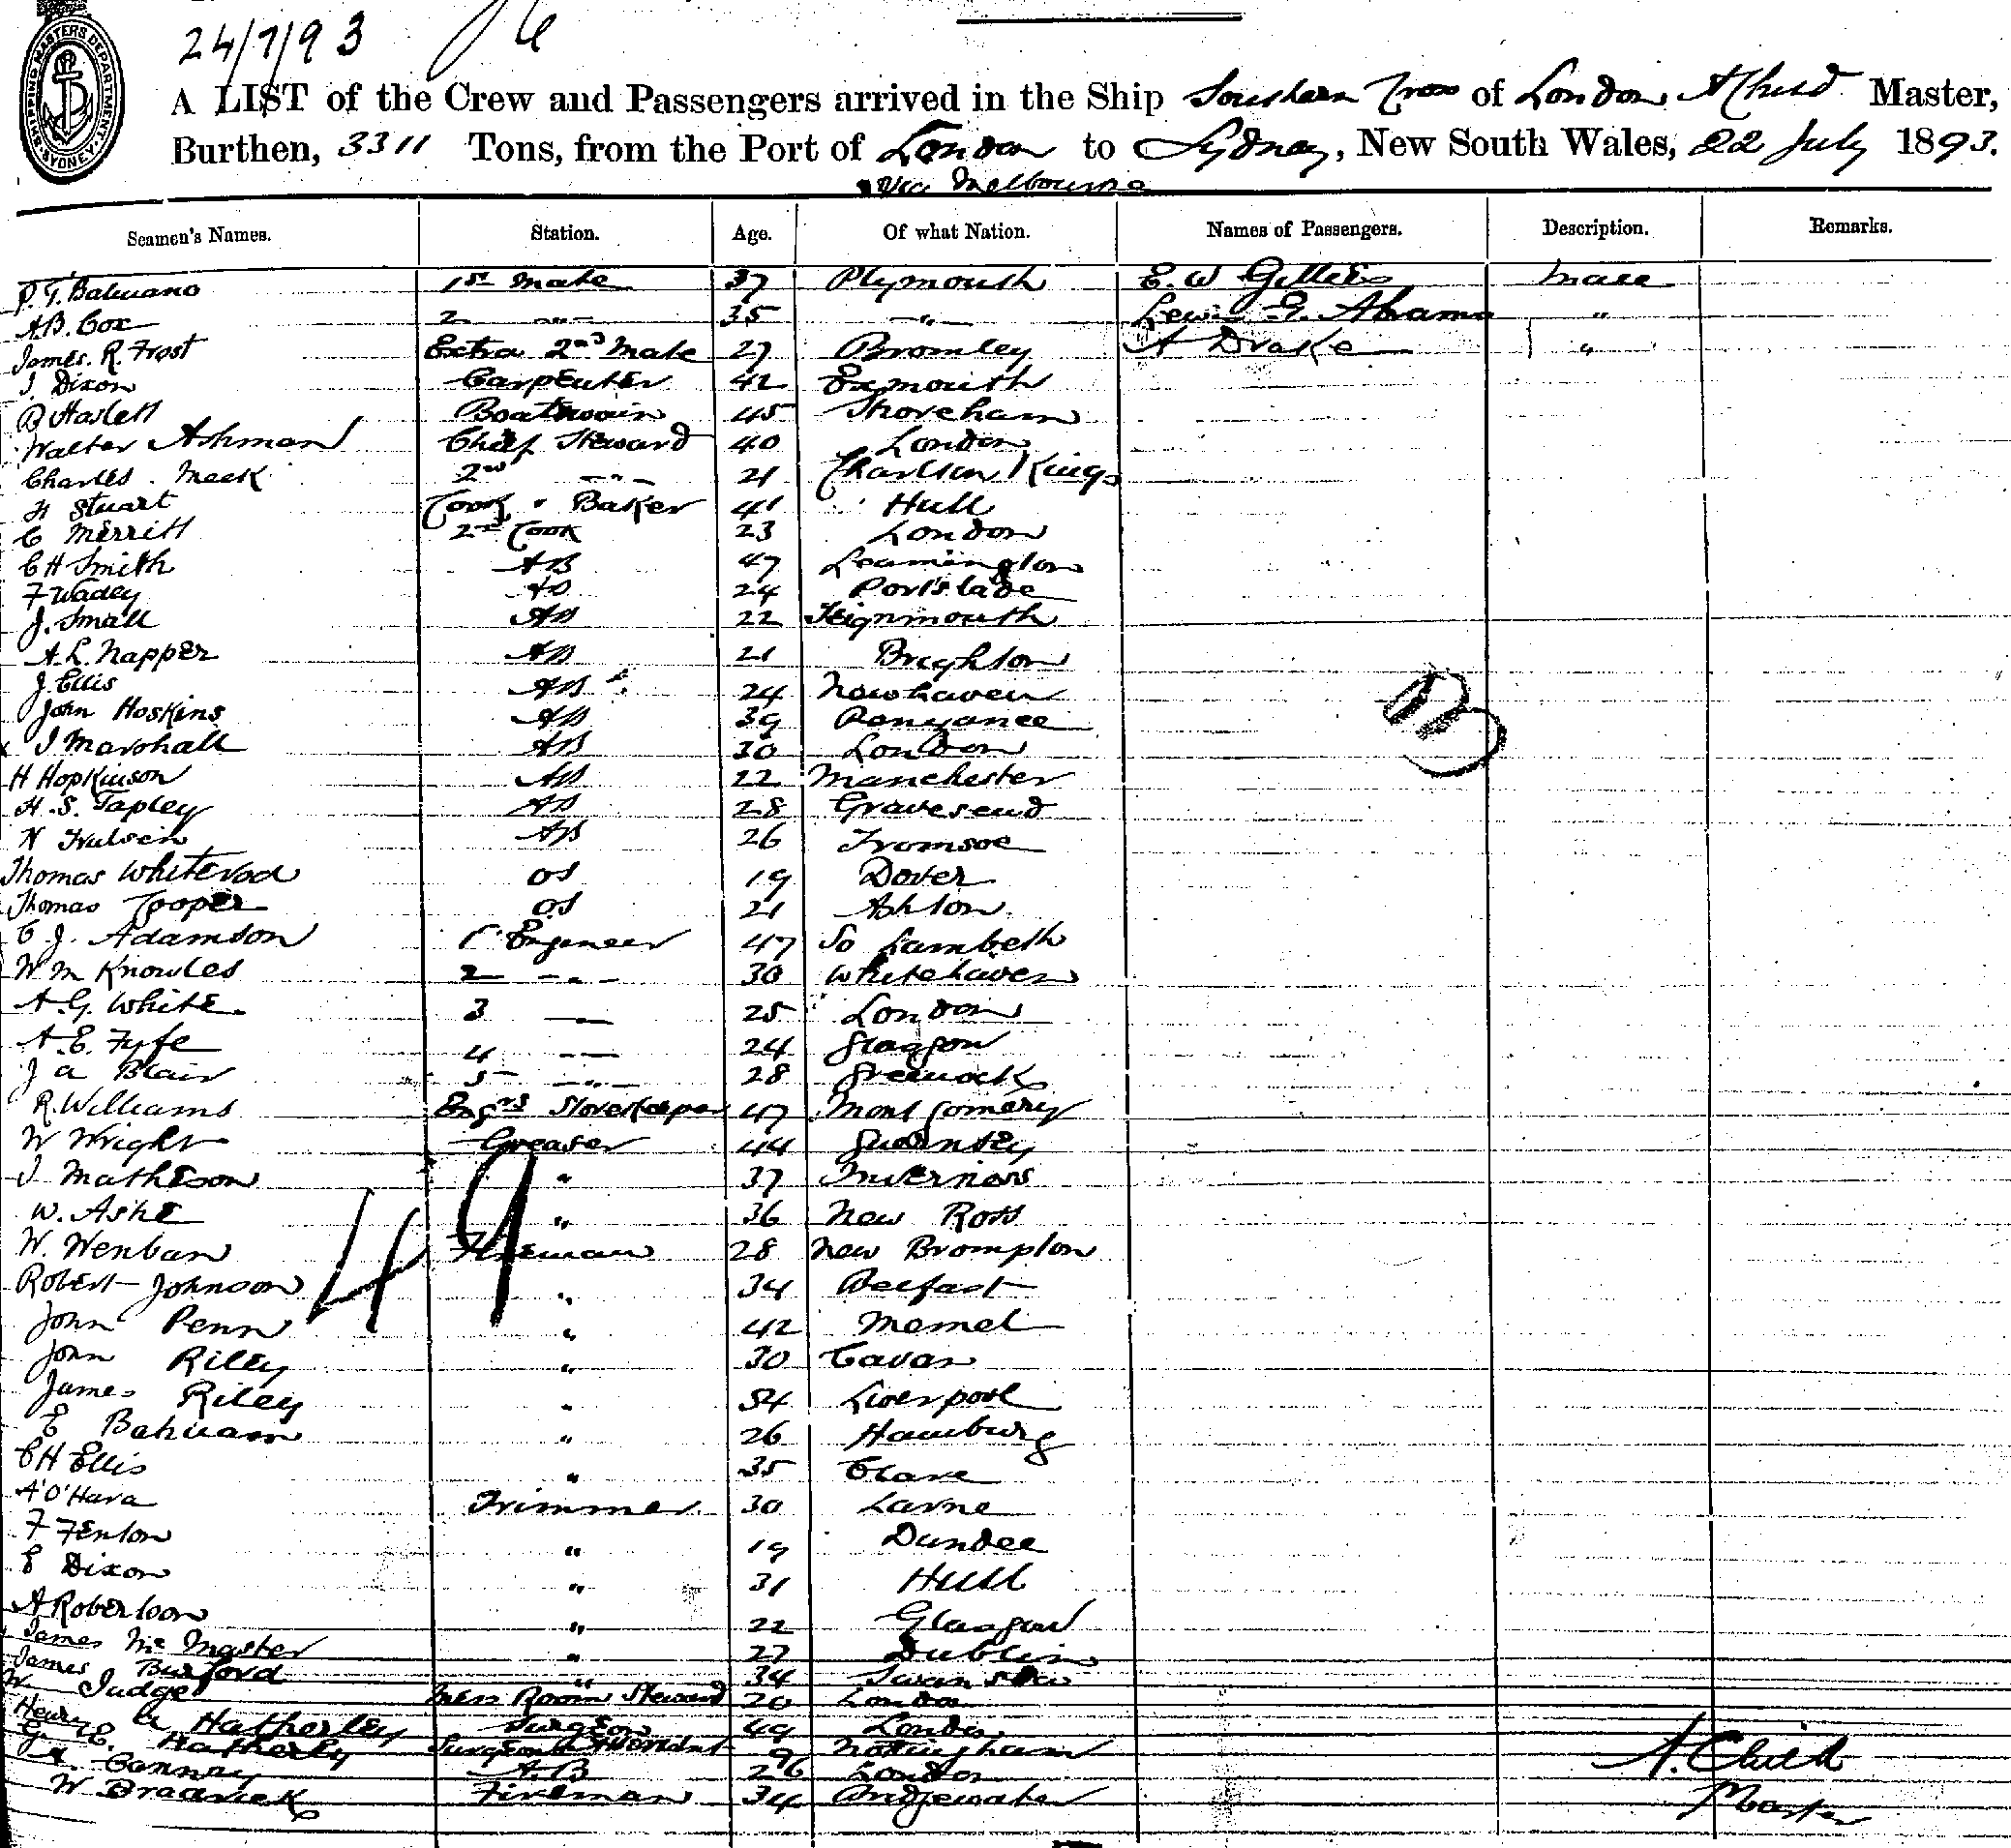 24/7/93
SHIPPING MASTERS DEPARTMENT SYDNEY
A LIST of the Crew and Passengers arrived in the Ship Southern Cross of London A Child Master,
Burthen, 3311 Tons, from the Port of London to Sydney, New South Wales, 22 July 1893.
via Melbourne
Seamen's Names. Station. Age. Of what Nation. Names of Passengers. Description. Remarks.
1st Mate 37 Plymouth E. W Gillies Male
A.B. Cox 2 -"- 35 -"- Lewis G. Abrams "
James. R. Frost Extra 2nd Mate 27 Bromley A Drake "
J. Dixon Carpenter 42 Exmouth
R Haslett Boatswain 45 Shoreham
Walter Ashman Chief Steward 40 London
Charles Meek 2nd -"- 21 Charlton Kings
H Stuart Cook & Baker 41 Hull
C Merritt 2nd Cook 23 London
C H Smith AB 47 Leamington
F Wadey AB 24 Portslade
J. Small AB 22 Teignmouth
A. L. Napper AB 21 Brighton
J. Ellis AB 24 Newhaven
John Hoskins AB 39 Penzance
x J Marshall AB 30 London
H Hopkinson AB 22 Manchester
H. S. Tapley AB 28 Gravesend
N AB 26 Tromsoe
Thomas Whiterod OS 19 Dover
Thomas Cooper OS 21 Ashton
C. J. Adamson 1st Engineer 47 So Lambeth
Wm Knowles 2 -"- 30 Whitehaven
A. G. White 3 — 25 London
A. E. Fyfe 4 -- 24 Glasgow
J a Blair 5 -"- 28 Greenock
R. Williams Engrs Storekeeper 47 Montgomery
W Wright Greaser 44 Guernsey
J Matheson " 37 Inverness
W. Ashe " 36 New Ross
W. Wenban Fireman 28 New Brompton
49
Robert Johnson " 34 Belfast
John Penn " 42 Memel
John Riley " 30 Cavan
James Riley " 34 Liverpool
E " 26 Hamburg
C H Ellis " 35 Clare
A O'Hara Trimmer 30 Larne
F Fenton " 19 Dundee
E Dixon " 31 Hull
A Robertson " 22 Glasgow
James McMaster " 27 Dublin
James Burford " 34 Swansea
W Judge Mess Room Steward 20 London
Henry A Hatherley Surgeon 49 London
G. E. Hatherly Surgeons 9 Nottingham
A. AB 26 London
W Bradrick Fireman 34 Bridgewater
A. Child
Master